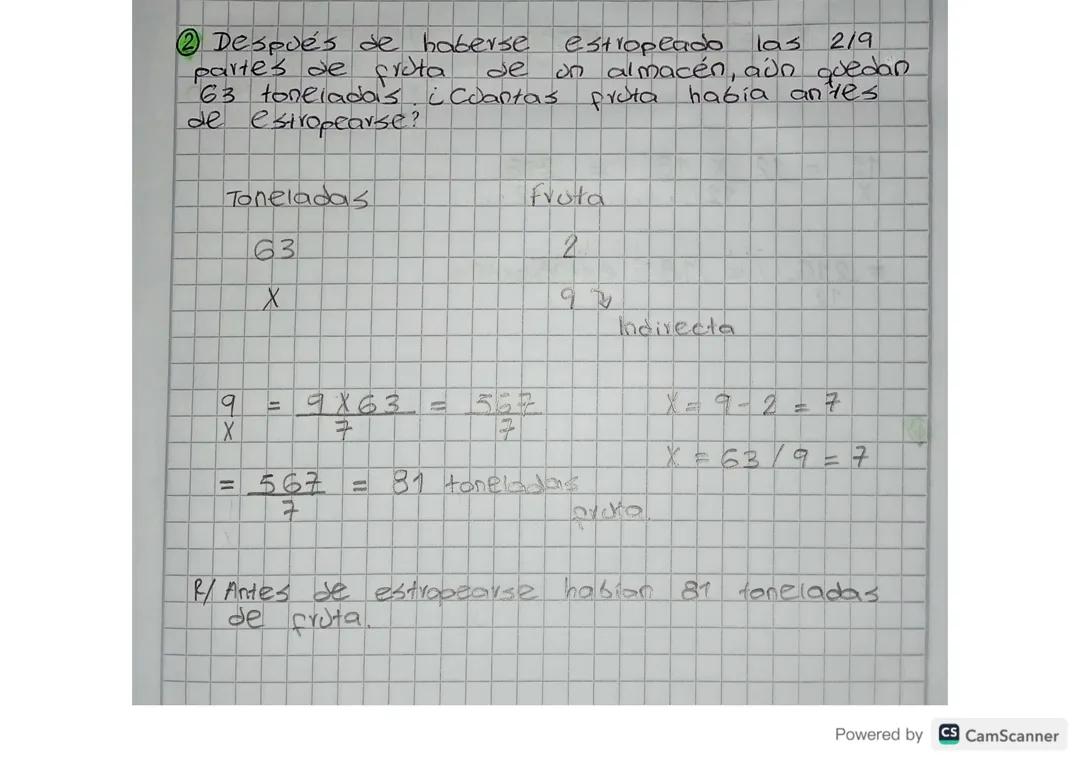 ② Después de haberse estropeado las 2/9
partes de fruta de un almacén, aún quedan
63 toneladas. ¿Cuantas fruta habia antes
de estropearse?
Toneladas Fruta
63 2
X 9
Indirecta
9/X = 9 X 63/7 = 567/7 X = 9 - 2 = 7
X = 63 / 9 = 7
= 567/7 = 81 toneladas
fruta.
R/ Antes de estropearse habian 81 toneladas
de fruta.
Powered by CS CamScanner